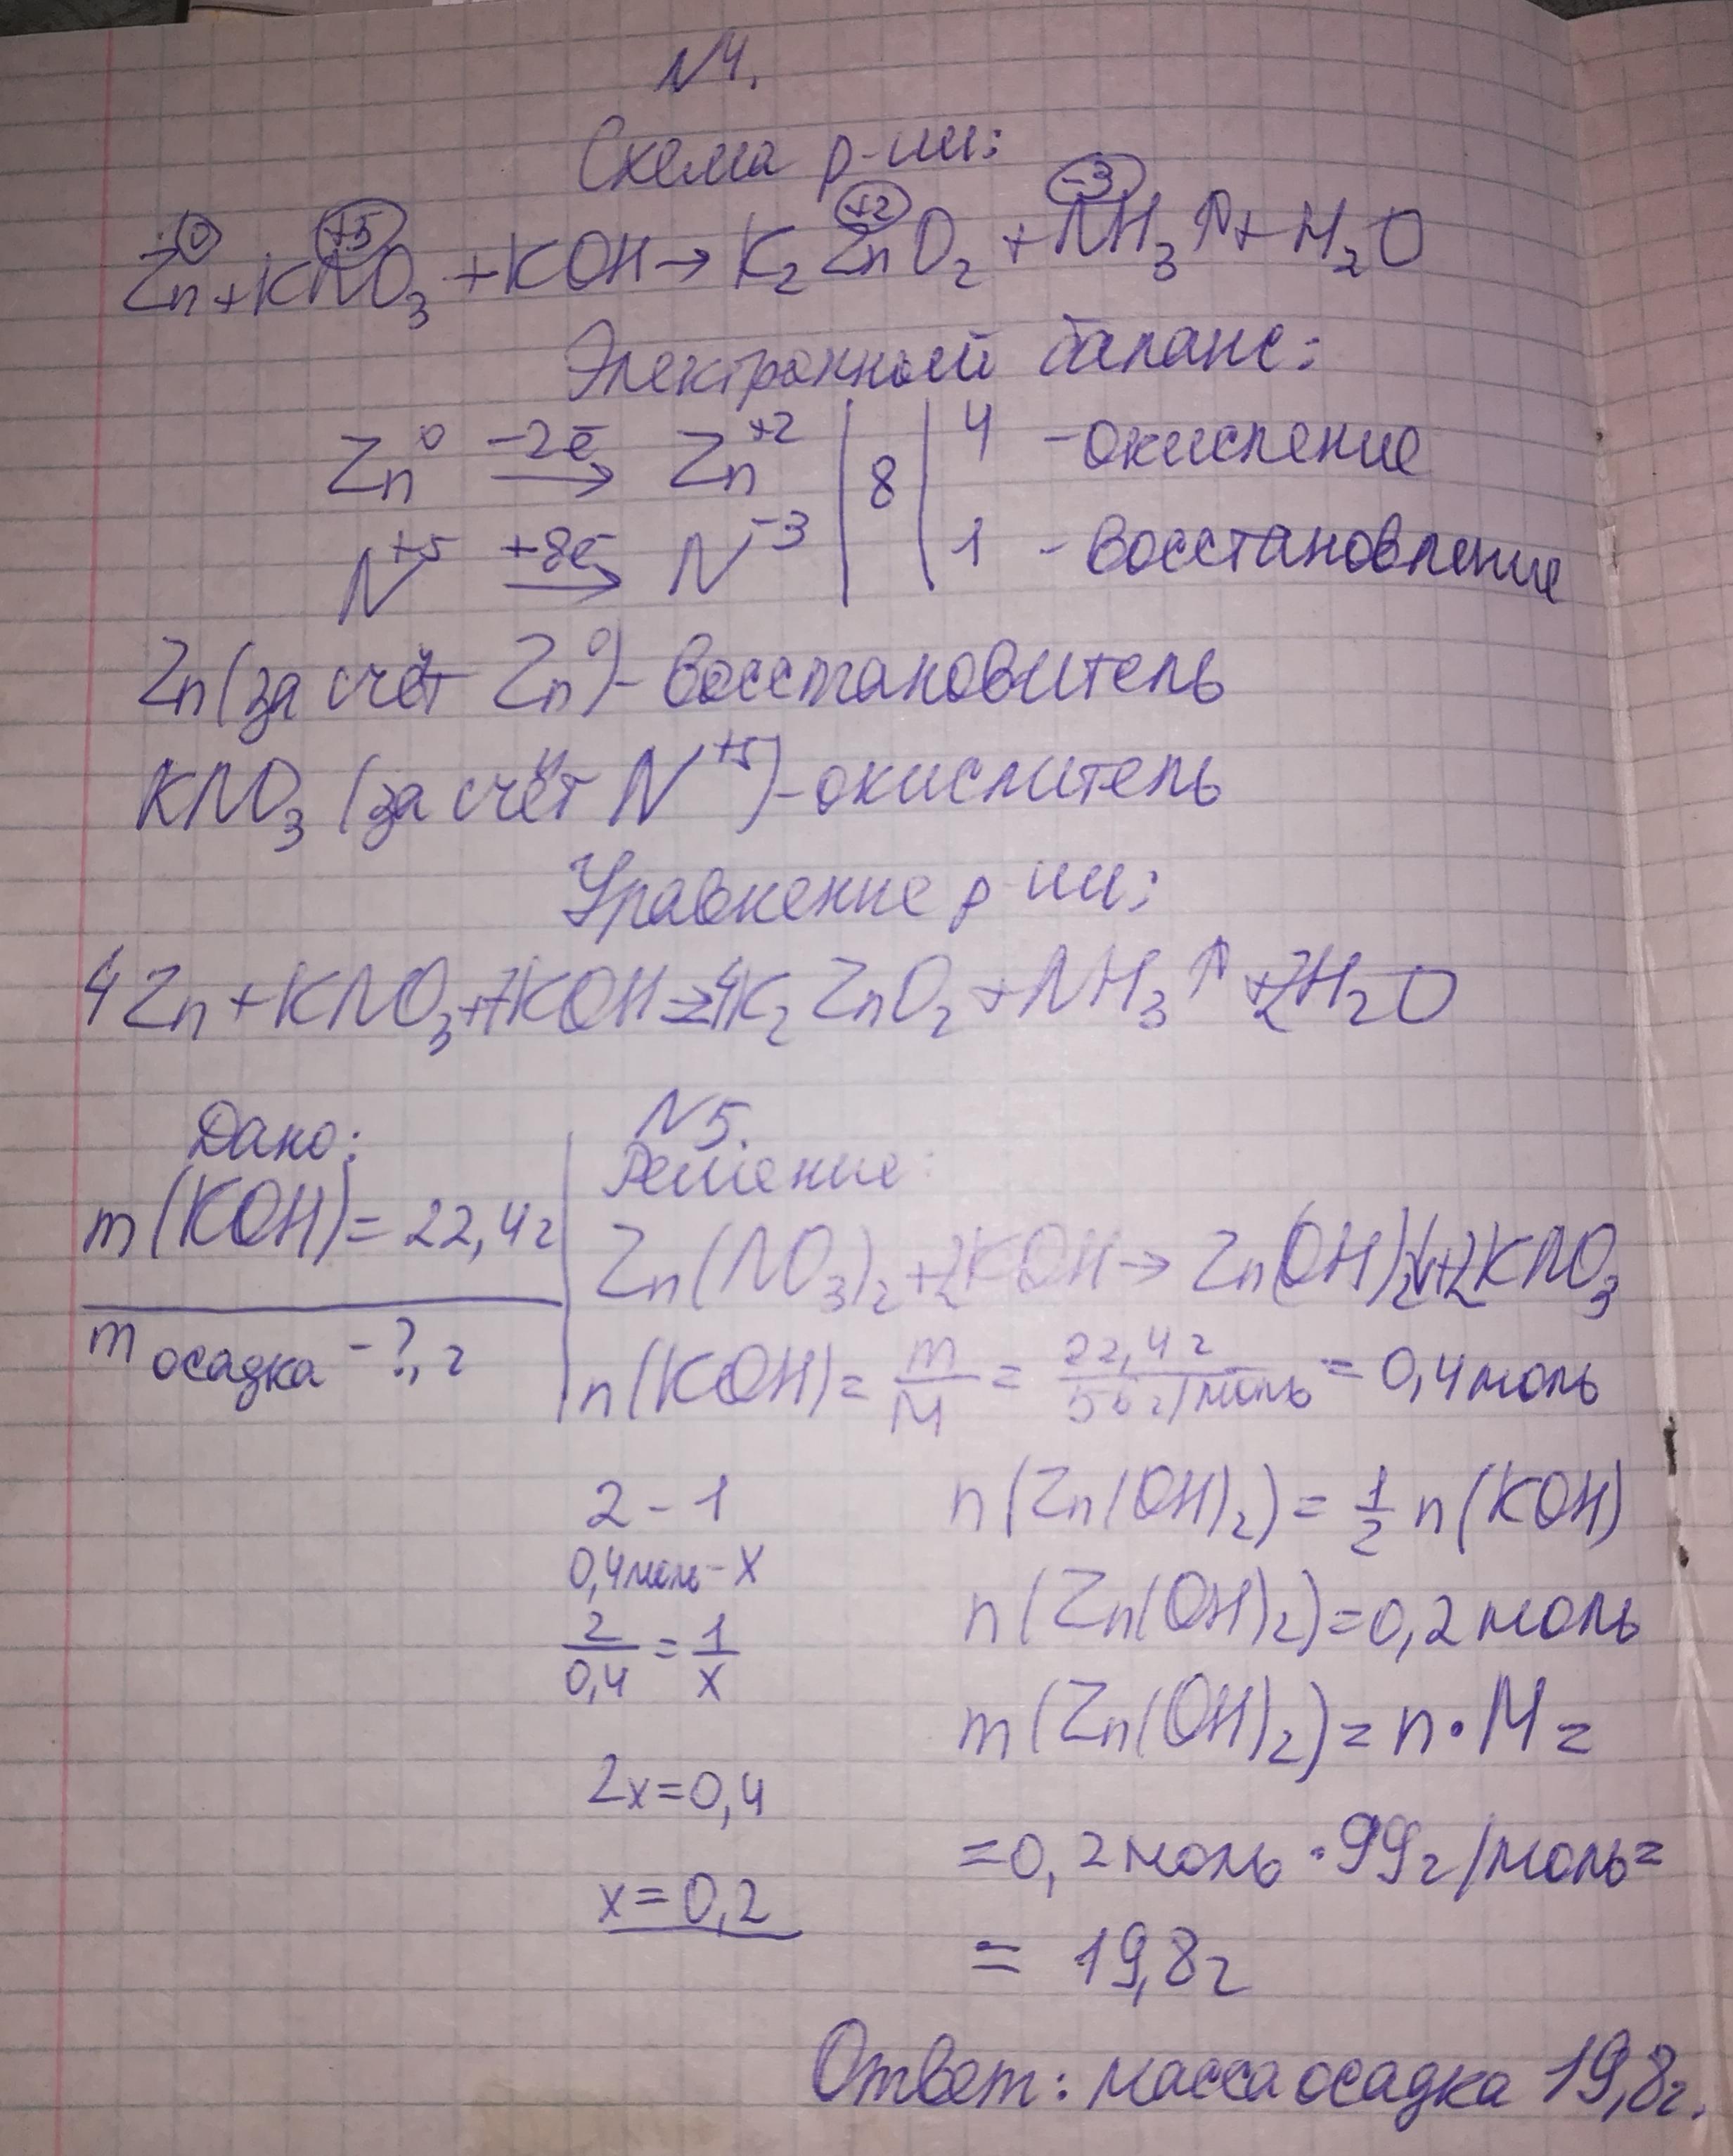 N4.
Схема р-ии:
Zn⁰ + KN⁺⁵O₃ + KOH → K₂Zn⁺²O₂ + N⁻³H₃↑ + H₂O
Электронный баланс:
Zn⁰ −2e̅→ Zn⁺² | 8 | 4 - окисление
N⁺⁵ +8e̅→ N⁻³ | | 1 - восстановление
Zn (за счёт Zn⁰) - восстановитель
KNO₃ (за счёт N⁺⁵) - окислитель
Уравнение р-ии:
4Zn + KNO₃ + 7KOH = 4K₂ZnO₂ + NH₃↑ + 2H₂O
N5.
Дано:
m(KOH) = 22,4г
m осадка - ?, г
Решение:
Zn(NO₃)₂ + 2KOH → Zn(OH)₂↓ + 2KNO₃
n(KOH) = m/M = 22,4г/56г/моль = 0,4моль
2 - 1
0,4моль - x
2/0,4 = 1/x
2x = 0,4
x = 0,2
n(Zn(OH)₂) = 1/2 n(KOH)
n(Zn(OH)₂) = 0,2моль
m(Zn(OH)₂) = n · M =
= 0,2моль · 99г/моль =
= 19,8г
Ответ: масса осадка 19,8г.